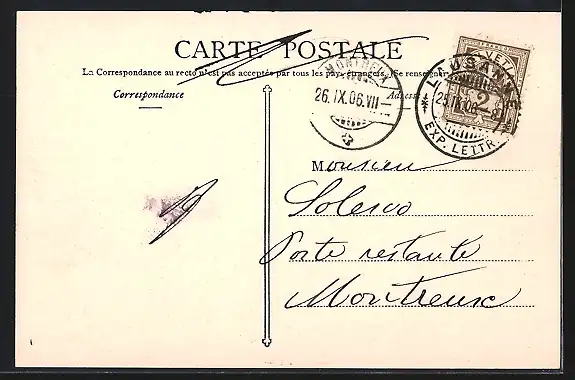 CARTE POSTALE
La Correspondance au recto n'est pas acceptée par tous les pays étrangers. (Se renseigner
Correspondance
Adresse
MONTREUX
26.IX.06.VII—
LAUSANNE
25.IX.06—8
EXP. LETTR.
HELVETIA
2
Monsieur
Solevo
Poste restante
Montreux